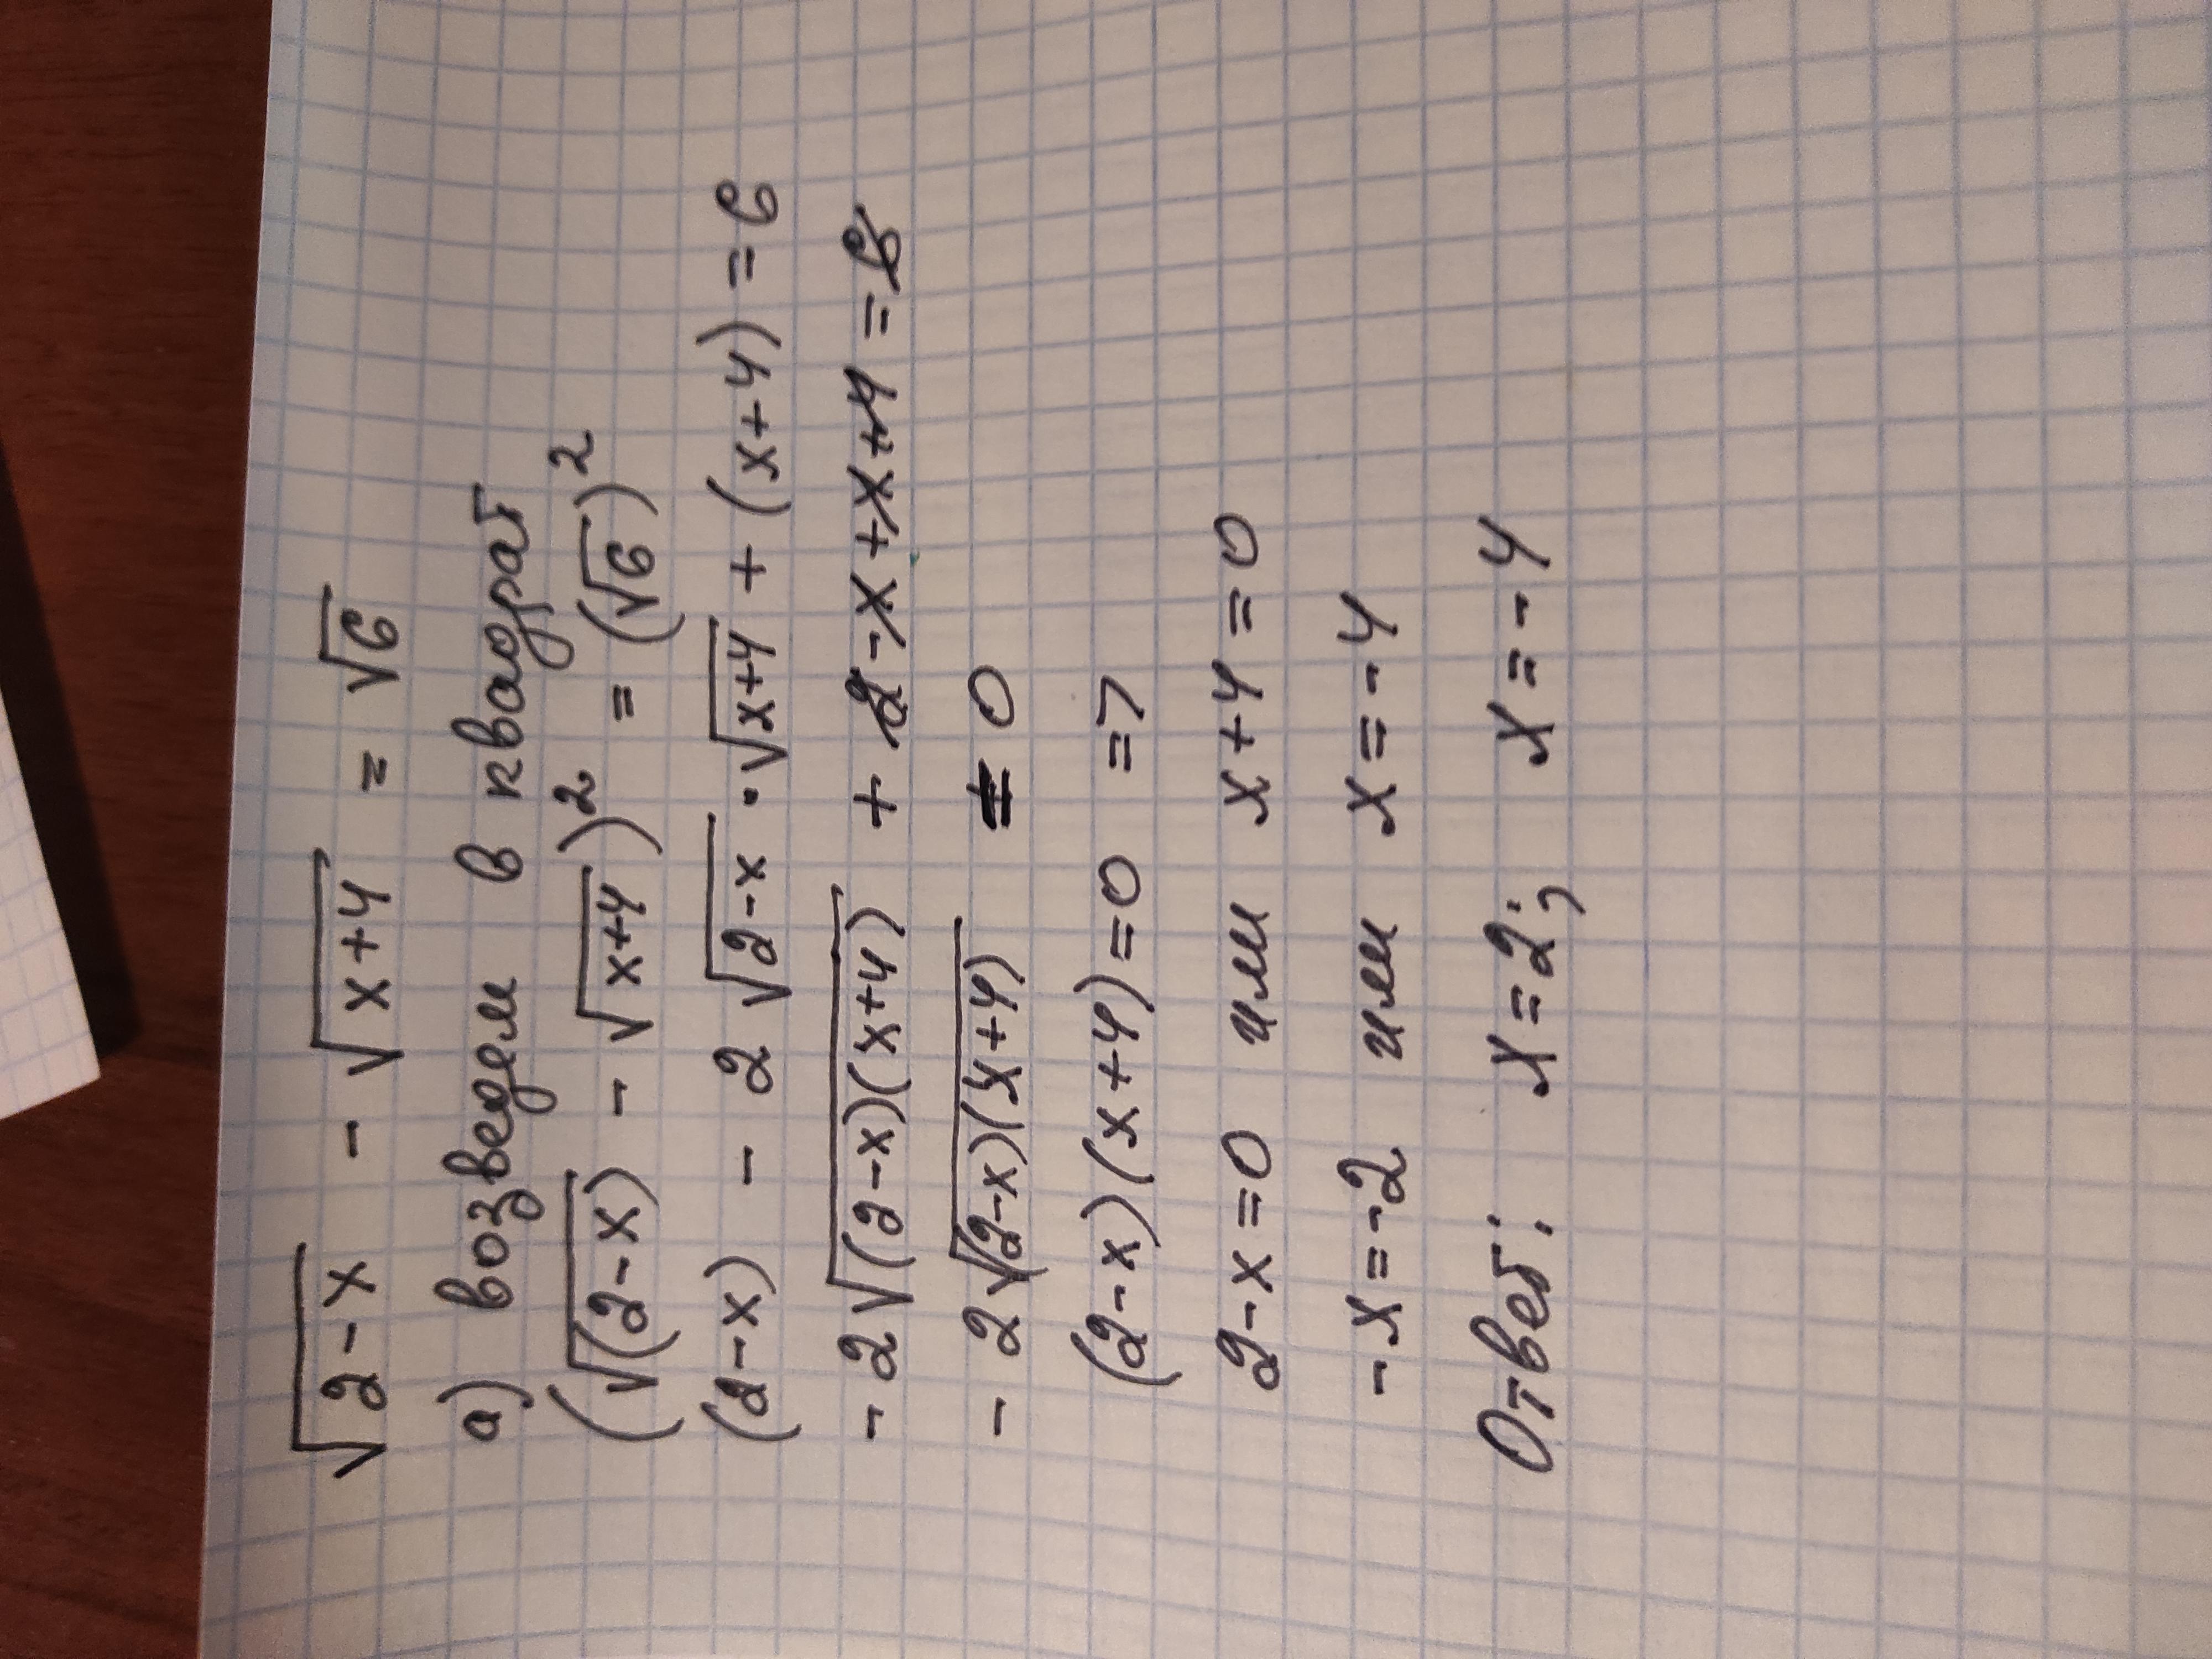 √2-x - √x+4 = √6
а) возведем в квадрат
(√(2-x) - √x+4)² = (√6)²
(2-x) - 2√2-x · √x+4 + (x+4) = 6
- 2√(2-x)(x+4) + 2-x+x+4 = 6
- 2√(2-x)(x+4) = 0
(2-x)(x+4)=0 =>
2-x=0 или x+4=0
-x=-2 или x=-4
Ответ: x=2; x=-4